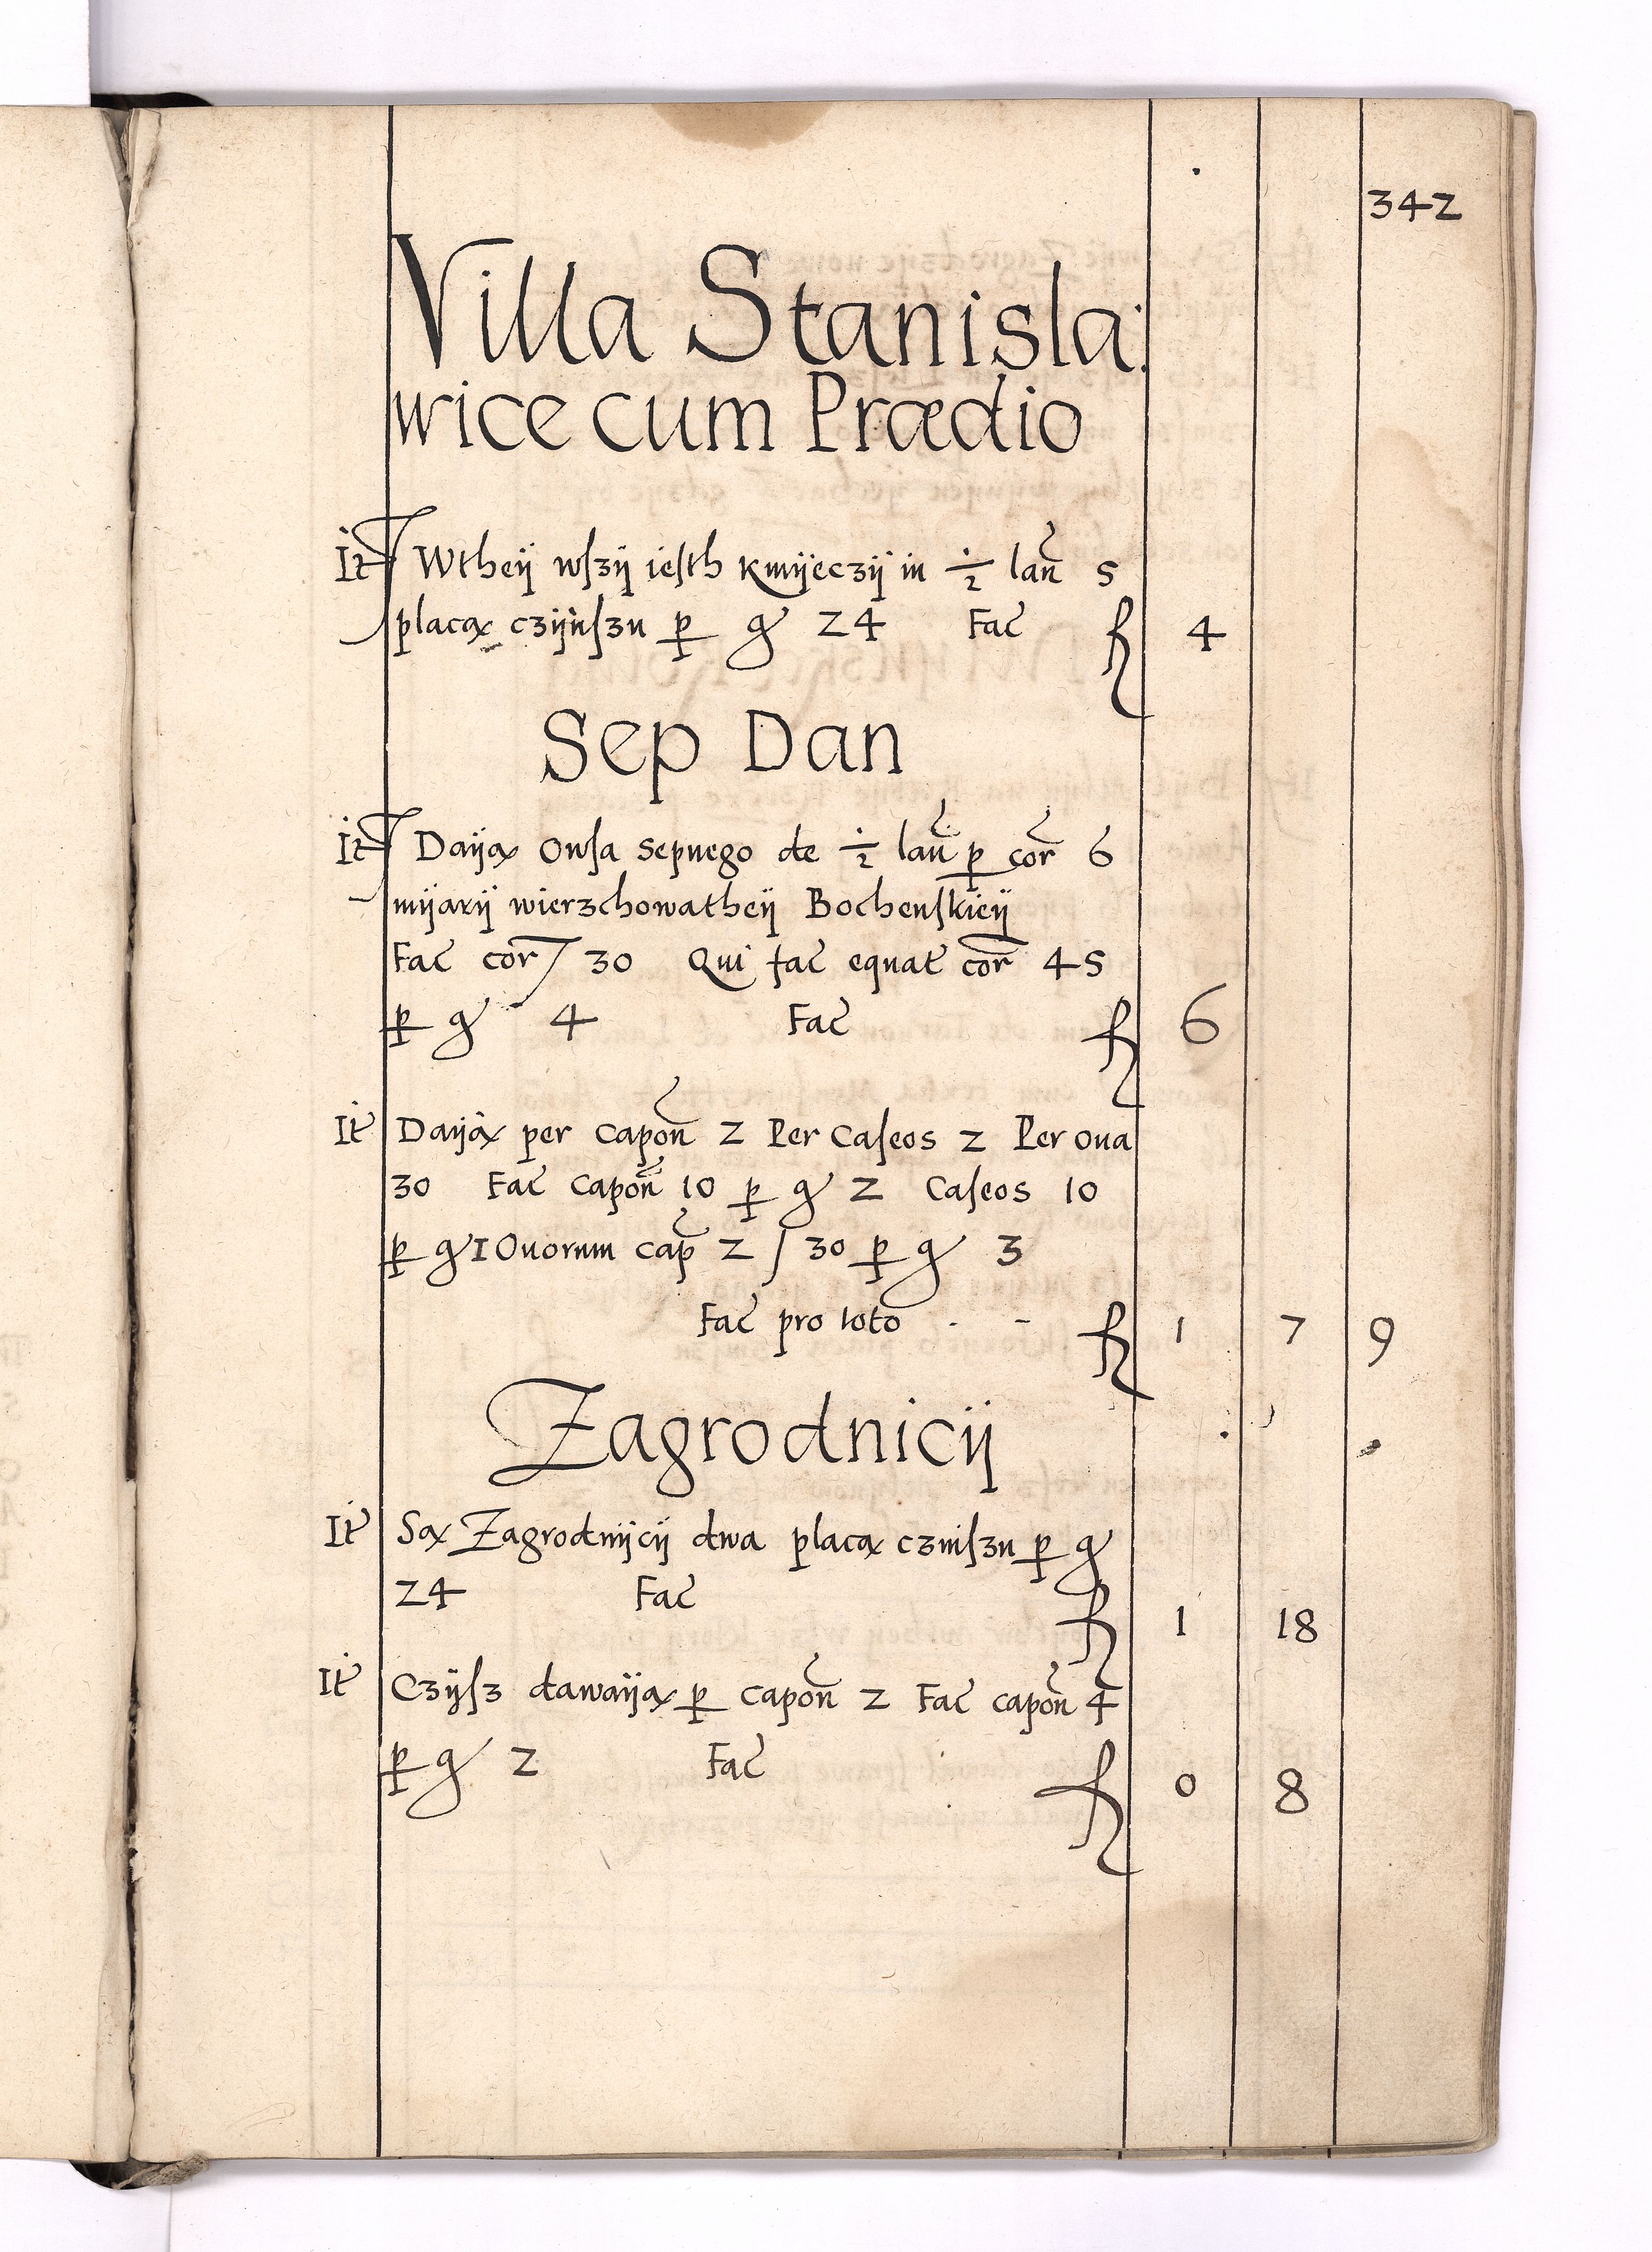 342
Villa Stanisla:
wice cum Prædio
It Wtheÿ wſzÿ ieſth Kmÿeczÿ in ½ lan̄ 5
placą czÿnſzu p̱ g 24 Fac̄ fl 4
Sep Dan
It Daÿą Owſa Sepnego de ½ lan̄ p̱ cor̄ 6
mÿarÿ wierzchowatheÿ Bochenſkieÿ
Fac̄ cor̄ 30 Qui fac̄ equat̄ cor̄ 45
p̱ g 4 Fac̄ fl 6
It Daÿą per capon̄ 2 Per Caſeos 2 Per oua
30 Fac̄ capon̄ 10 p̱ g 2 Caſeos 10
p̱ g 1 Ouorum cap̄ 2 / 30 p̱ g 3
Fac̄ pro toto - - fl 1 7 9
Zagrodnicÿ
It Są Zagrodnÿcÿ dwa placą czinſzu p̱ g
24 Fac̄ fl 1 18
It Czÿſz dawaÿą p̱ capon̄ 2 Fac̄ capon̄ 4
p̱ g 2 Fac̄ fl 0 8